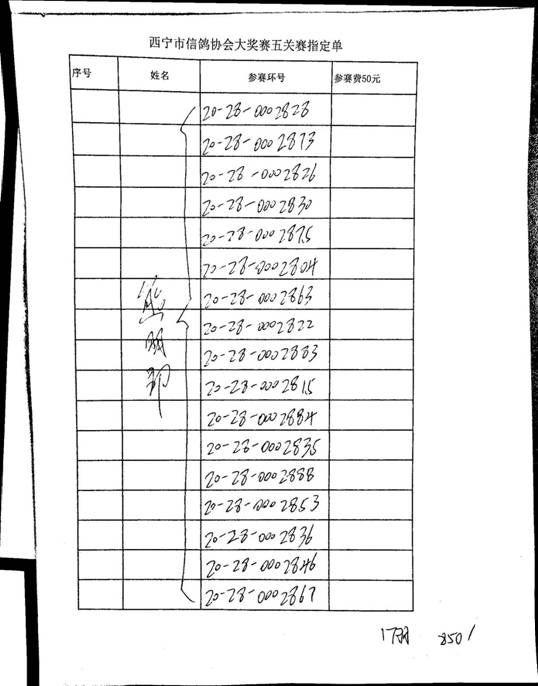 西宁市信鸽协会大奖赛五关赛指定单
序号 姓名 参赛环号 参赛费50元
20-28-0002828
20-28-0002873
20-28-0002826
20-28-0002830
20-28-0002875
20-28-0002804
20-28-0002863
20-28-0002822
20-28-0002883
20-28-0002815
20-28-0002884
20-28-0002835
20-28-0002888
20-28-0002853
20-28-0002836
20-28-0002846
20-28-0002867
17羽 850/